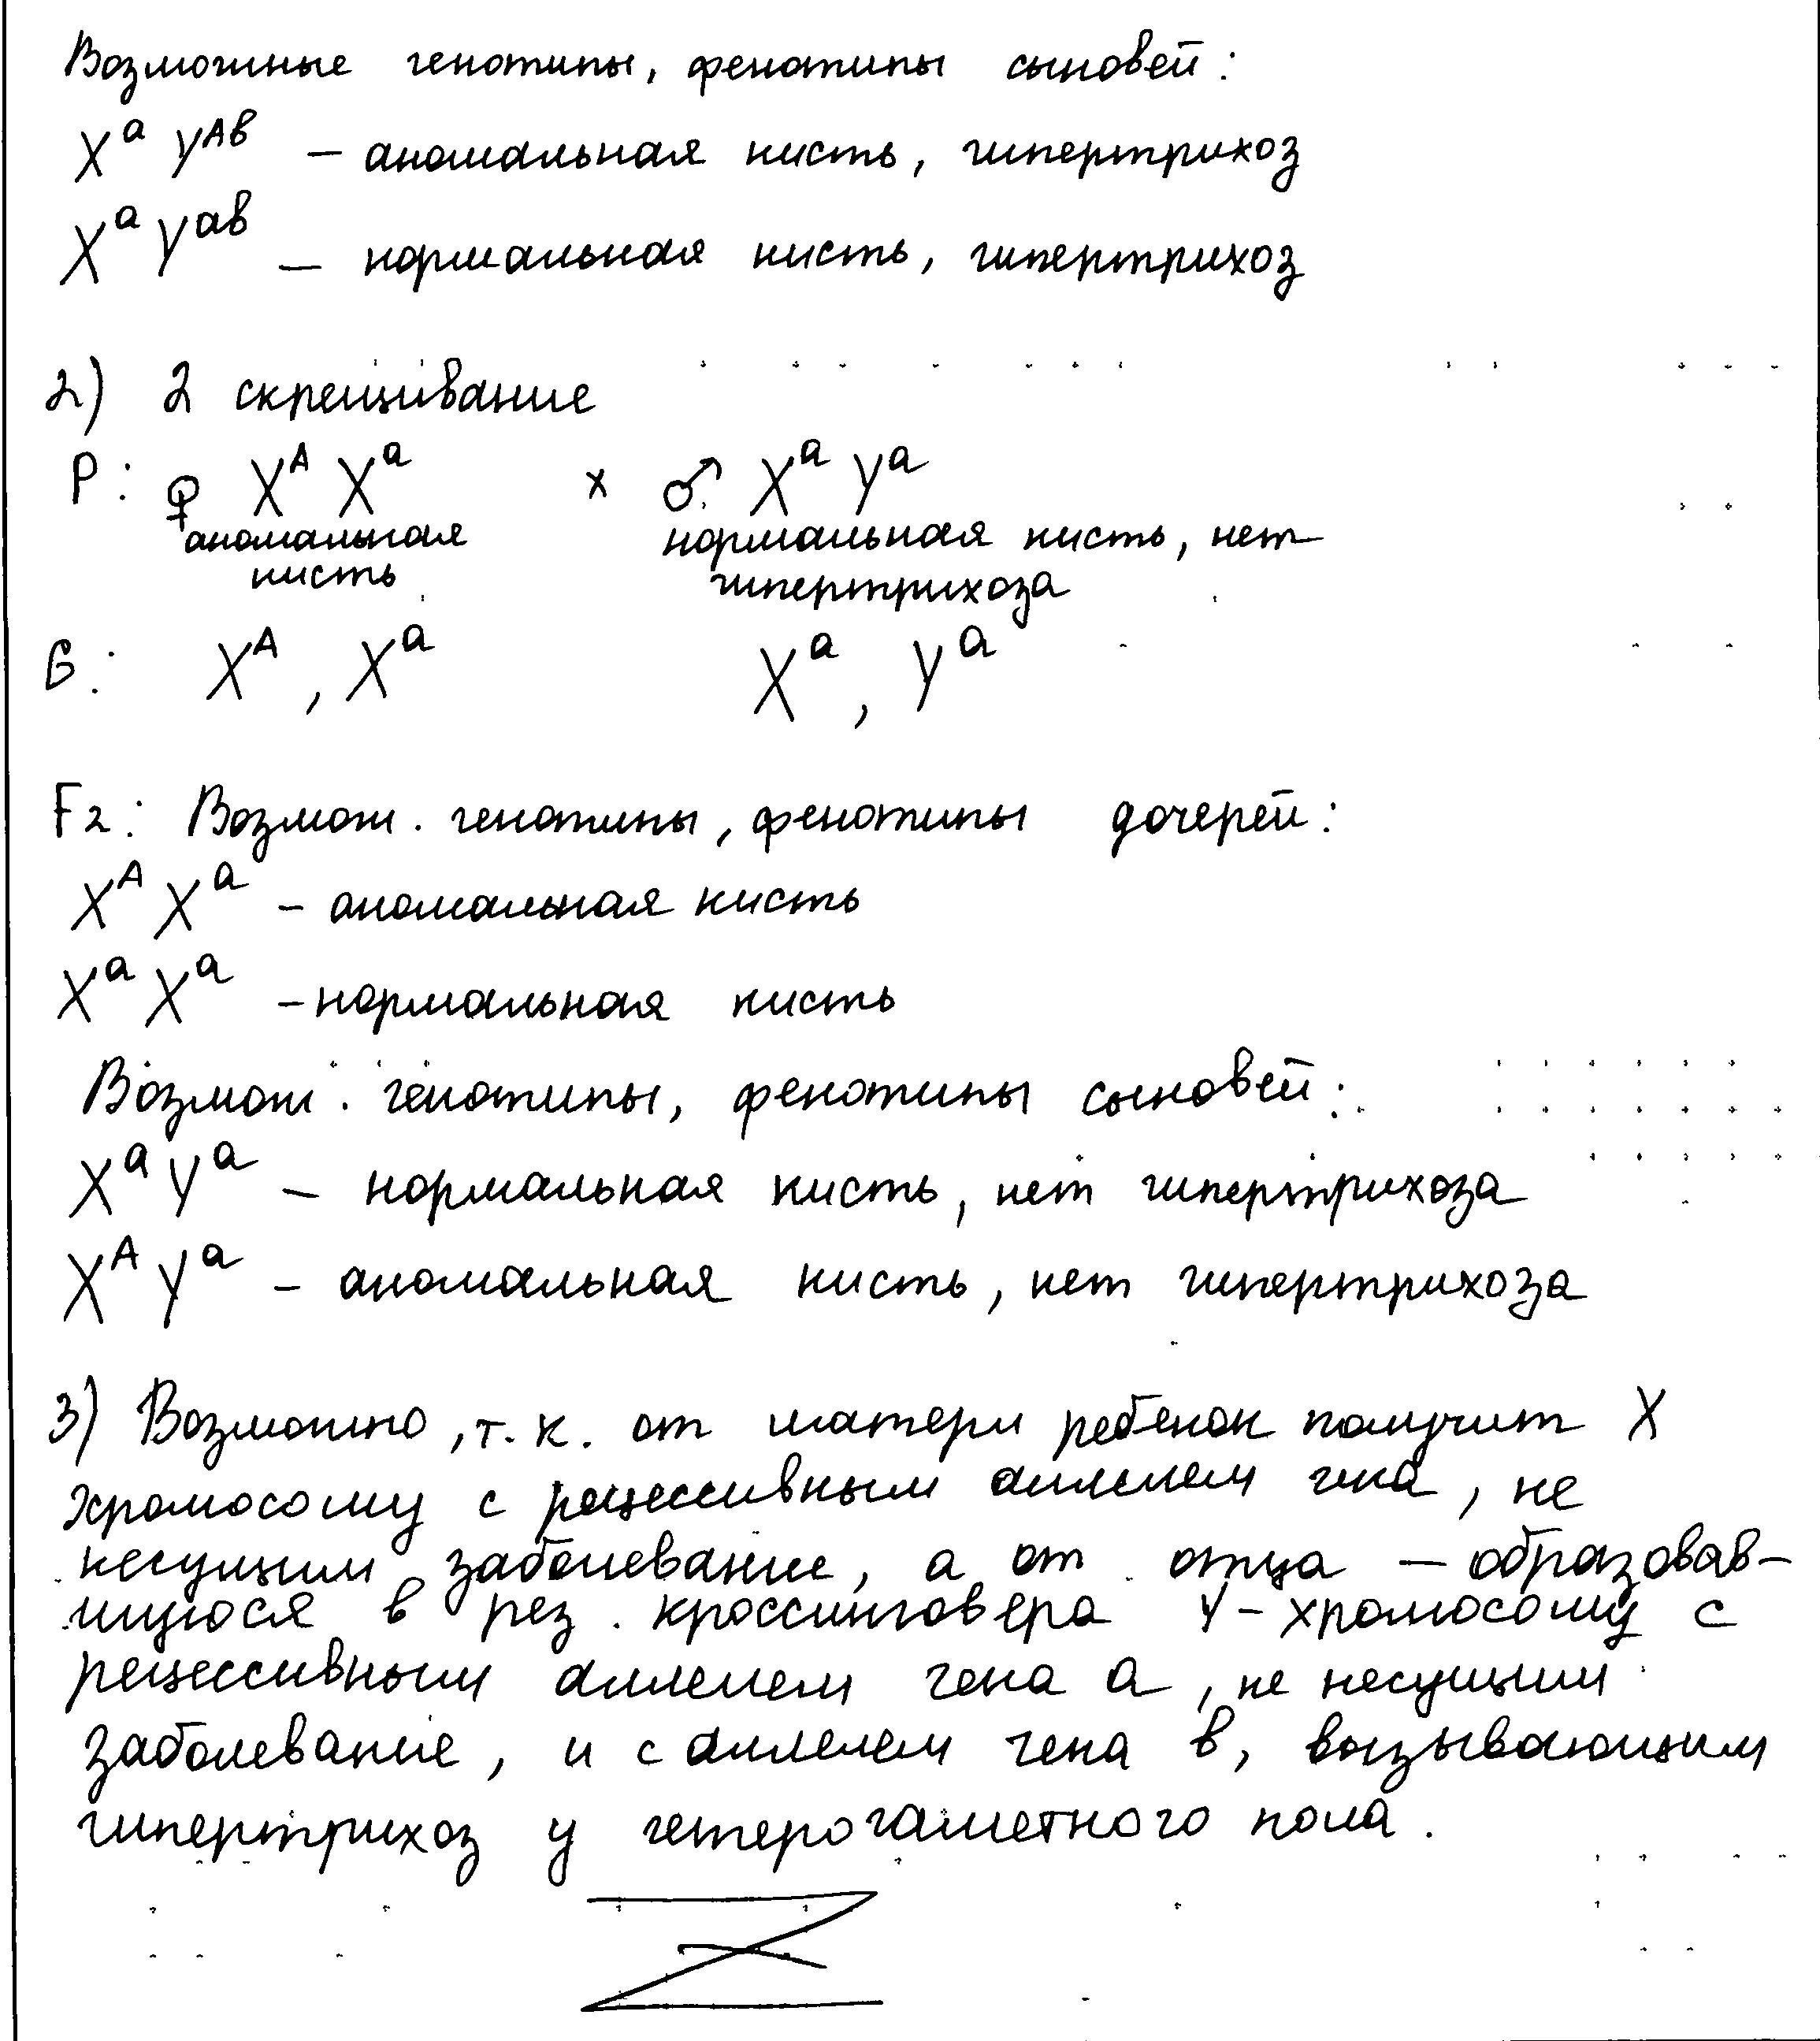 Возможные генотипы, фенотипы сыновей:
Xᵃ Yᴬᵇ — аномальная кисть, гипертрихоз
Xᵃ Yᵃᵇ — нормальная кисть, гипертрихоз
2) 2 скрещивание
P: ♀ Xᴬ Xᵃ x ♂ Xᵃ Yᵃ
аномальная нормальная кисть, нет
кисть гипертрихоза
G: Xᴬ, Xᵃ Xᵃ, Yᵃ
F2: Возмож. генотипы, фенотипы дочерей:
Xᴬ Xᵃ – аномальная кисть
Xᵃ Xᵃ – нормальная кисть
Возмож. генотипы, фенотипы сыновей:
Xᵃ Yᵃ – нормальная кисть, нет гипертрихоза
Xᴬ Yᵃ – аномальная кисть, нет гипертрихоза
3) Возможно, т.к. от матери ребенок получит X
хромосому с рецессивным аллелем гена, не
несущим заболевание, а от отца — образовав-
шуюся в рез. кроссинговера Y-хромосому с
рецессивным аллелем гена a, не несущим
заболевание, и с аллелем гена в, вызывающим
гипертрихоз у гетерогаметного пола.
Z